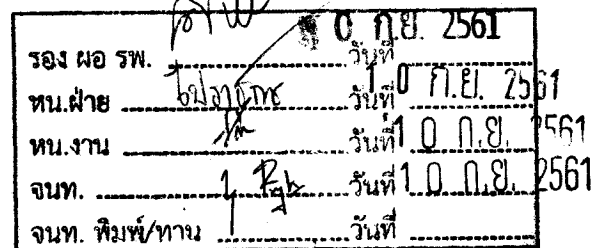 รอง ผอ รพ. วันที่ 0 ก.ย. 2561
หน.ฝ่าย วันที่ 1 0 ก.ย. 2561
หน.งาน วันที่ 1 0 ก.ย. 2561
จนท. วันที่ 1 0 ก.ย. 2561
จนท. พิมพ์/ทาน วันที่